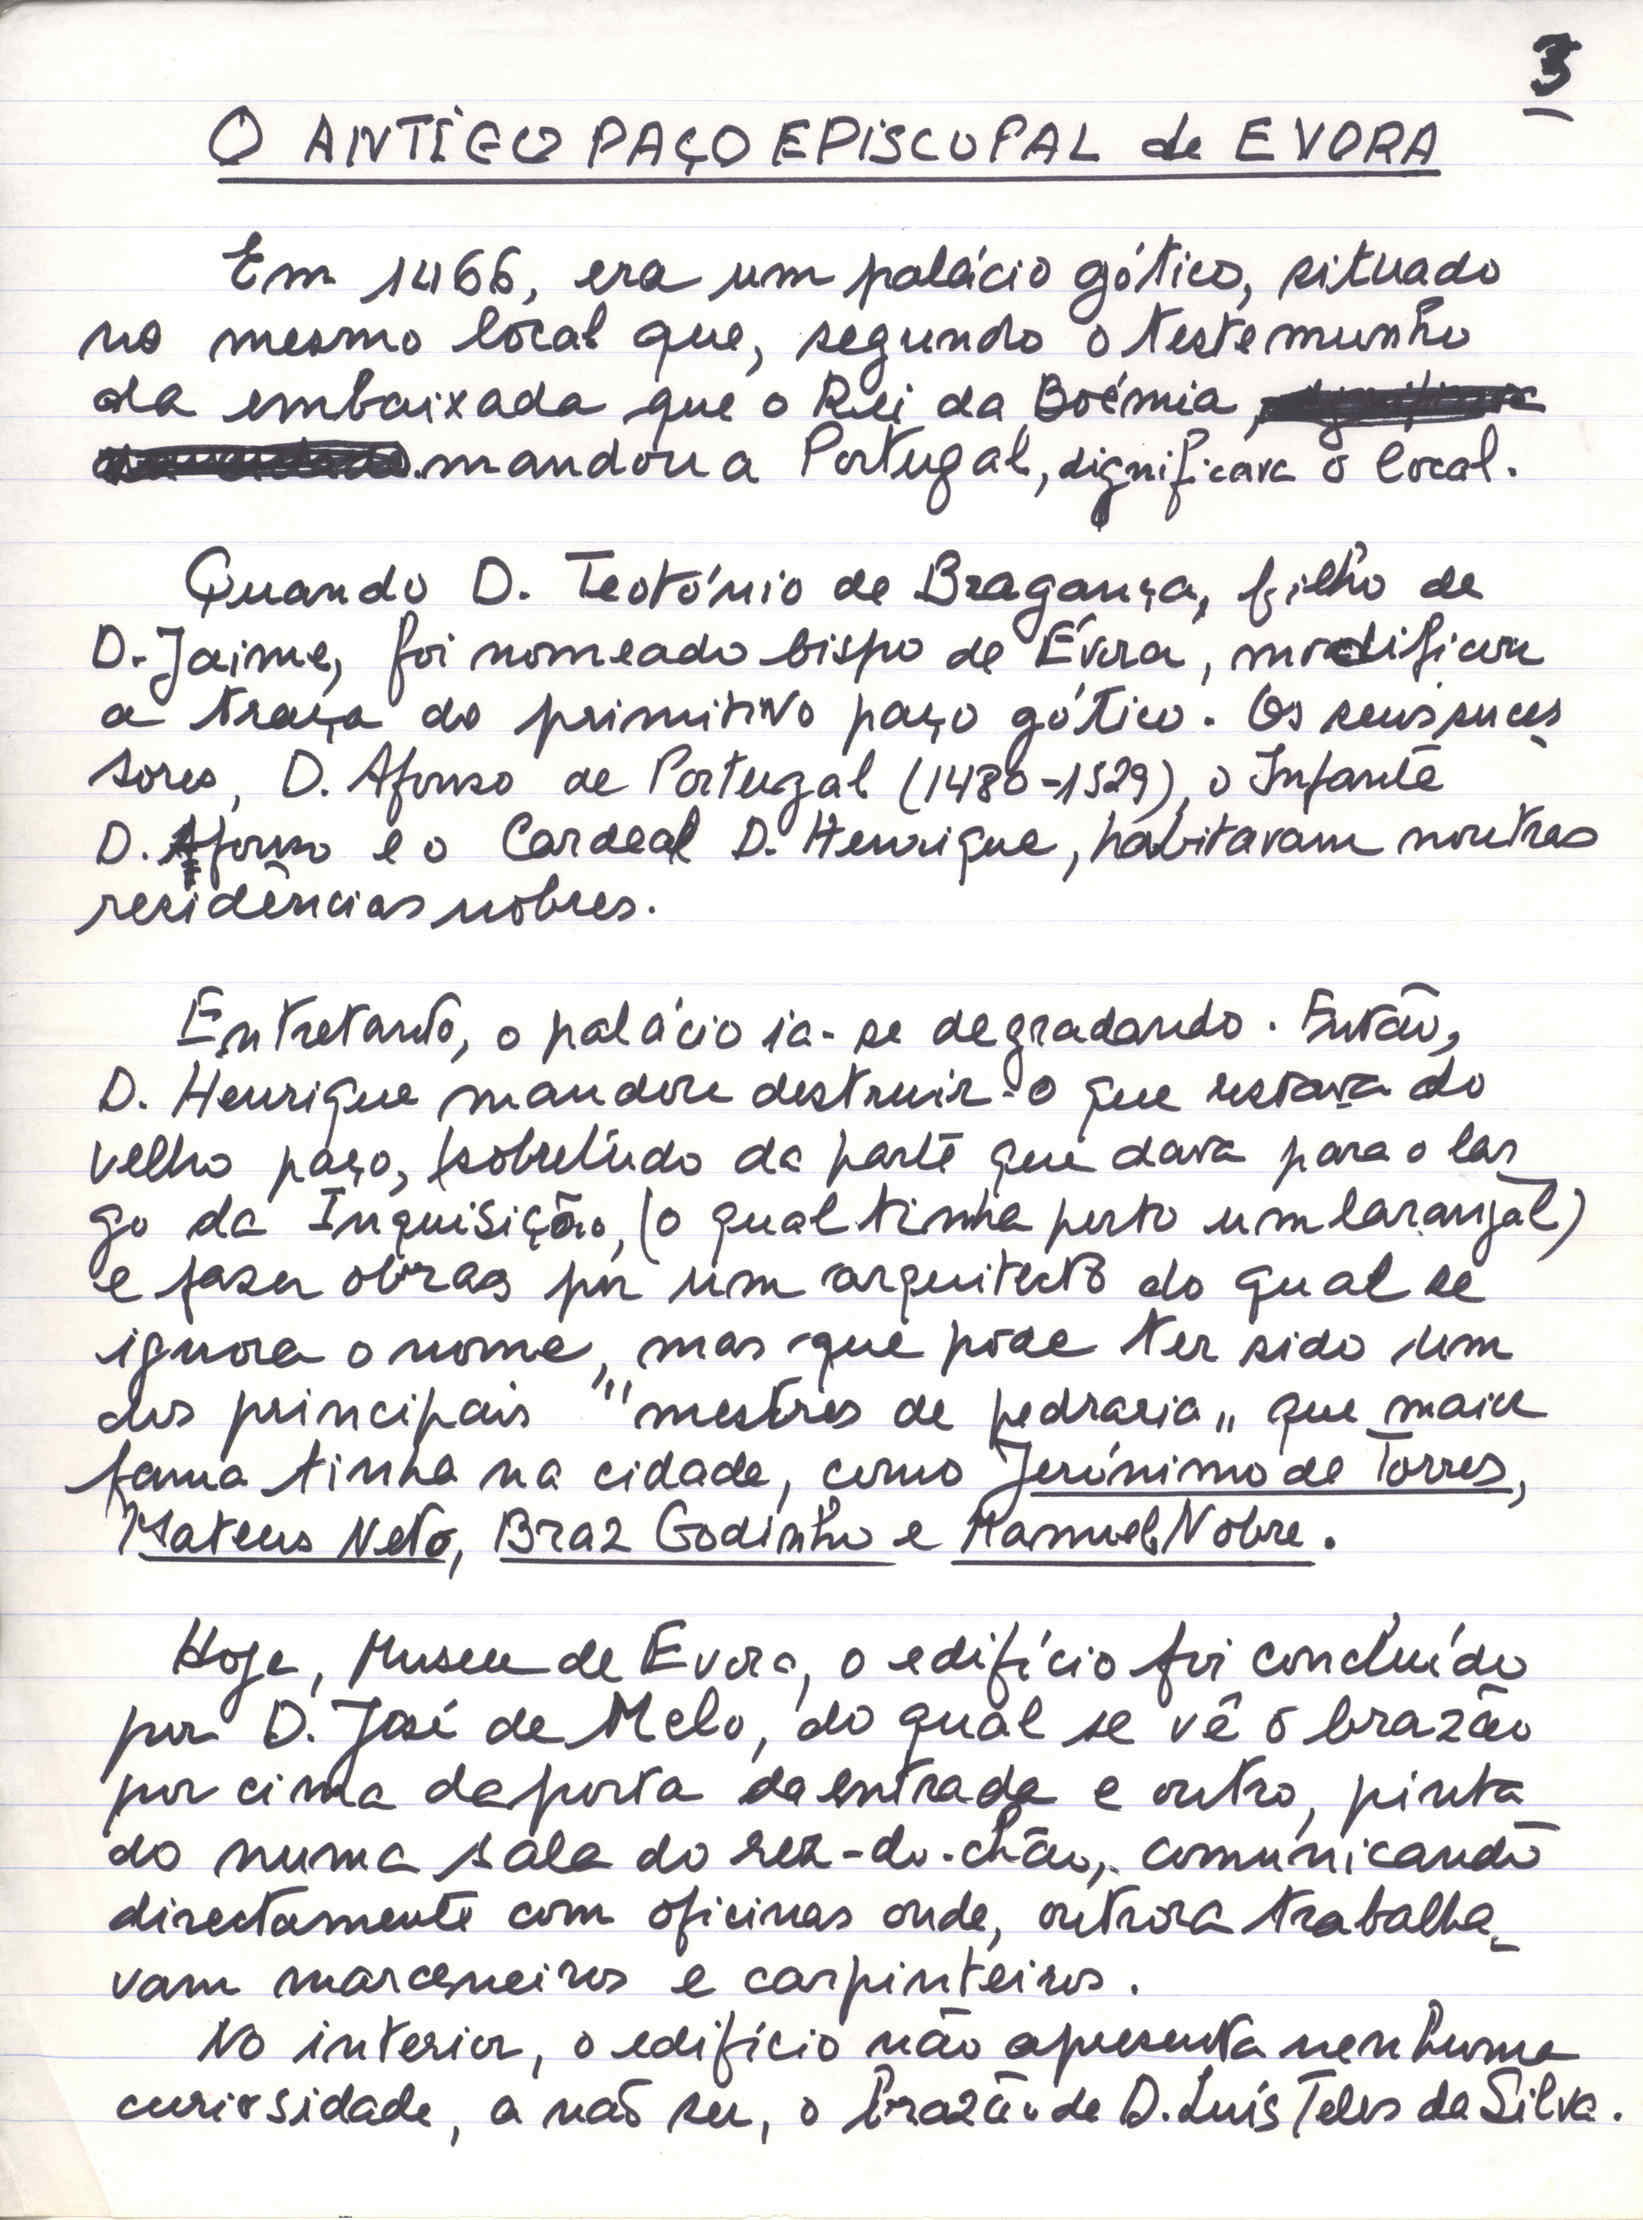 3
O ANTÍGO PAÇO EPISCOPAL de EVORA
Em 1466, era um palácio gótico, situado
no mesmo local que, segundo o testemunho
da embaixada que o Rei da Boémia,
mandou a Portugal, dignificava o local.
Quando D. Teotónio de Bragança, filho de
D. Jaime, foi nomeado bispo de Évora, modificou
a traça do primitivo paço gótico. Os seus suces
sores, D. Afonso de Portugal (1480-1529), o Infante
D. Afonso e o Cardeal D. Henrique, habitavam noutras
residências nobres.
Entretanto, o palácio ia-se degradando. Então,
D. Henrique mandou destruir o que restava do
velho paço, (sobretudo da parte que dava para o lar_
go da Inquisição, (o qual tinha perto um laranjal)
e fazer obras por um arquitecto do qual se
ignora o nome, mas que pode ter sido um
dos principais "mestres de pedraria" que maior
fama tinha na cidade, como Jerónimo de Torres,
Mateus Neto, Braz Godinho e Manuel Nobre.
Hoje, Museu de Evora, o edifício foi concluído
por D. José de Melo, do qual se vê o brazão
por cima da porta da entrada e outro, pinta
do numa sala do rez-do-chão, comunicando
directamente com oficinas onde, outrora trabalha_
vam marceneiros e carpinteiros.
No interior, o edifício não apresenta nenhuma
curiosidade, a não ser, o brazão de D. Luís Teles da Silva.